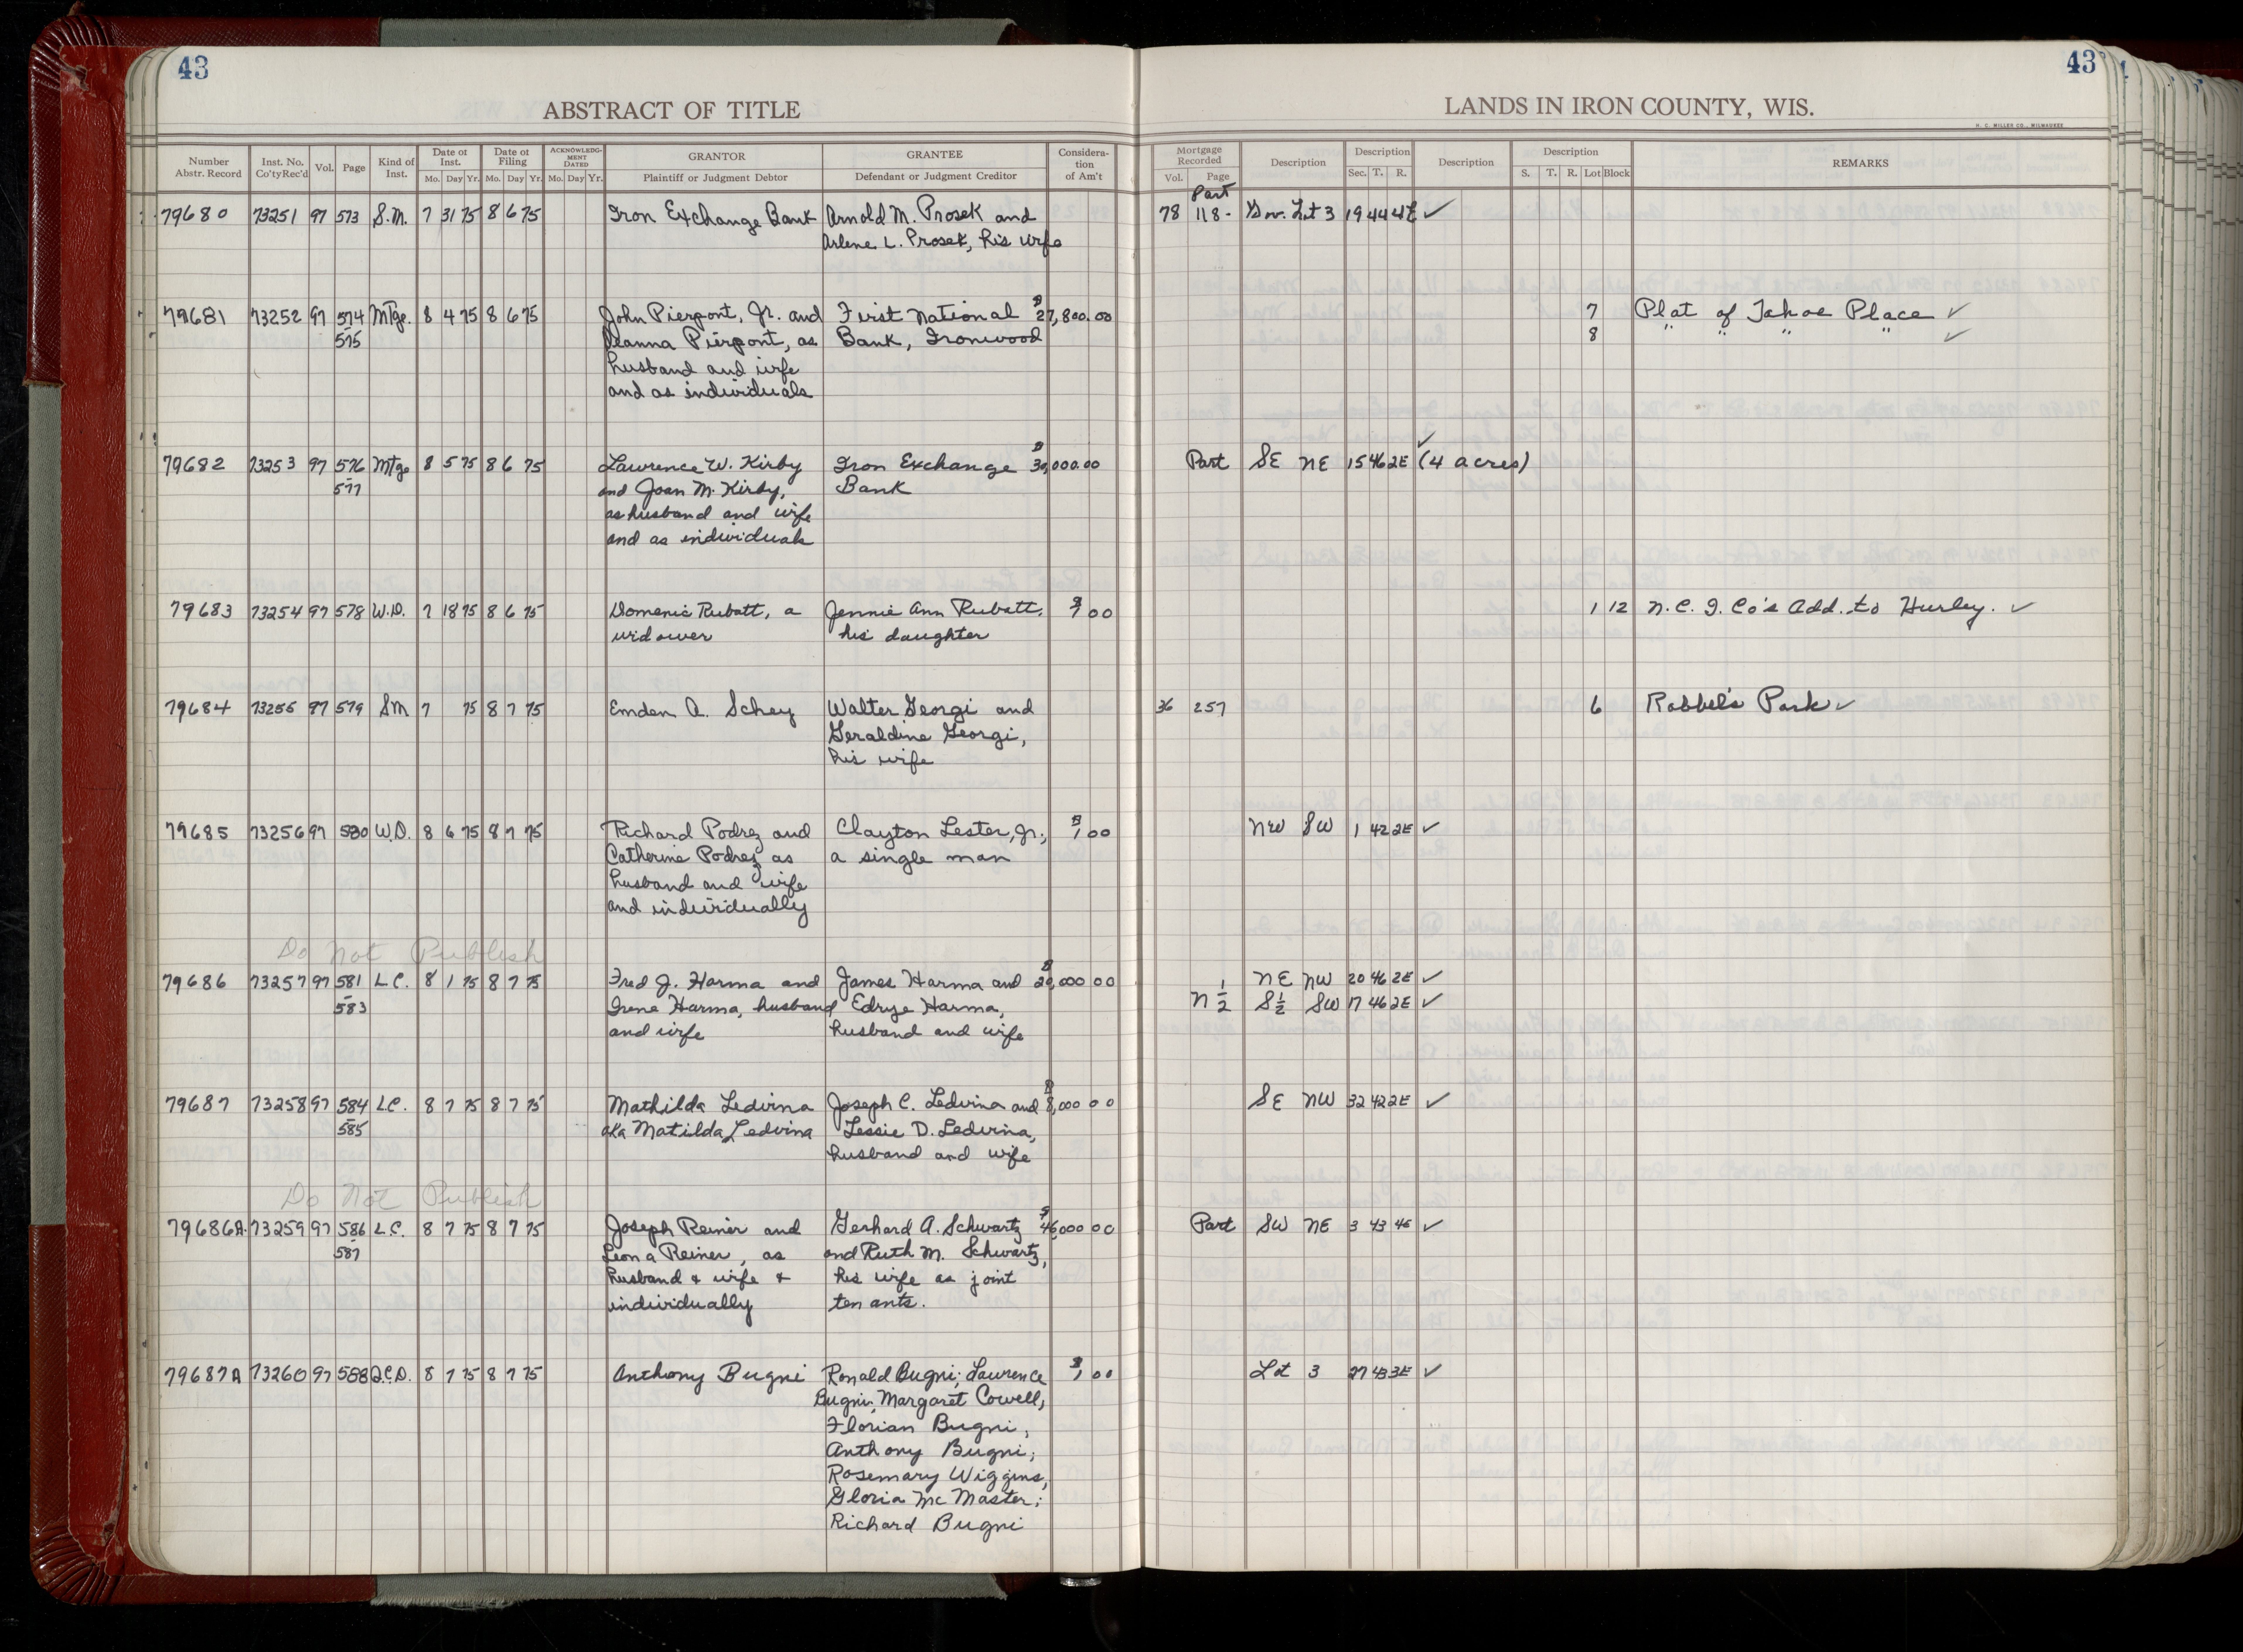 43
43
ABSTRACT OF TITLE
LANDS IN IRON COUNTY, WIS.
H. C. MILLER CO., MILWAUKEE
Number Abstr. Record | Inst. No. Co'ty Rec'd | Vol. | Page | Kind of Inst. | Date of Inst. Mo. Day Yr. | Date of Filing Mo. Day Yr. | ACKNOWLEDGMENT DATED Mo. Day Yr. | GRANTOR Plaintiff or Judgment Debtor | GRANTEE Defendant or Judgment Creditor | Consideration of Am't | Mortgage Recorded Vol. Page | Description | Description Sec. T. R. | Description | Description S. T. R. Lot Block | REMARKS
Part
79680 73251 97 573 S.M. 7 31 75 8 6 75 Iron Exchange Bank Arnold M. Prosek and 78 118- Gov. Lot 3 19 44 4E ✓
Arlene L. Prosek, his wife
79681 73252 97 574 Mtge. 8 4 75 8 6 75 John Pierpont, Jr. and First National $27,800.00 7 Plat of Tahoe Place ✓
- 575 Deanna Pierpont, as Bank, Ironwood 8 " " " ✓
husband and wife
and as individuals
79682 73253 97 576 Mtge 8 5 75 8 6 75 Lawrence W. Kirby Iron Exchange $30,000.00 Part SE NE 15 46 2E (4 acres) ✓
- 577 and Joan M. Kirby, Bank
as husband and wife
and as individuals
79683 73254 97 578 W.D. 7 18 75 8 6 75 Domenic Rubatt, a Jennie Ann Rubatt, $1 00 1 12 N.C. I. Co's Add. to Hurley. ✓
widower his daughter
79684 73255 97 579 SM 7 75 8 7 75 Emden A. Schey Walter Georgi and 36 257 6 Robbel's Park ✓
Geraldine Georgi,
his wife
79685 73256 97 580 W.D. 8 6 75 8 7 75 Richard Podrez and Clayton Lester, Jr., $1 00 NW SW 1 42 2E ✓
Catherine Podrez as a single man
husband and wife
and individually
Do Not Publish
79686 73257 97 581 L.C. 8 1 75 8 7 75 Fred J. Harma and James Harma and $20,000 00 NE NW 20 46 2E ✓
- 583 Irene Harma, husband Edrye Harma, N 1/2 S 1/2 SW 17 46 2E ✓
and wife husband and wife
79687 73258 97 584 L.C. 8 7 75 8 7 75 Mathilda Ledvina Joseph C. Ledvina and $8,000 00 SE NW 32 42 2E ✓
- 585 aka Matilda Ledvina Lessie D. Ledvina,
husband and wife
Do Not Publish
79686A 73259 97 586 L.C. 8 7 75 8 7 75 Joseph Reiner and Gerhard A. Schwartz $46,000 00 Part SW NE 3 43 4E ✓
- 587 Leona Reiner, as and Ruth M. Schwartz,
husband & wife & his wife as joint
individually tenants.
79687A 73260 97 588 Q.C.D. 8 7 75 8 7 75 Anthony Bugni Ronald Bugni; Lawrence $1 00 Lot 3 27 43 3E ✓
Bugni; Margaret Cowell;
Florian Bugni;
Anthony Bugni;
Rosemary Wiggins,
Gloria Mc Master;
Richard Bugni